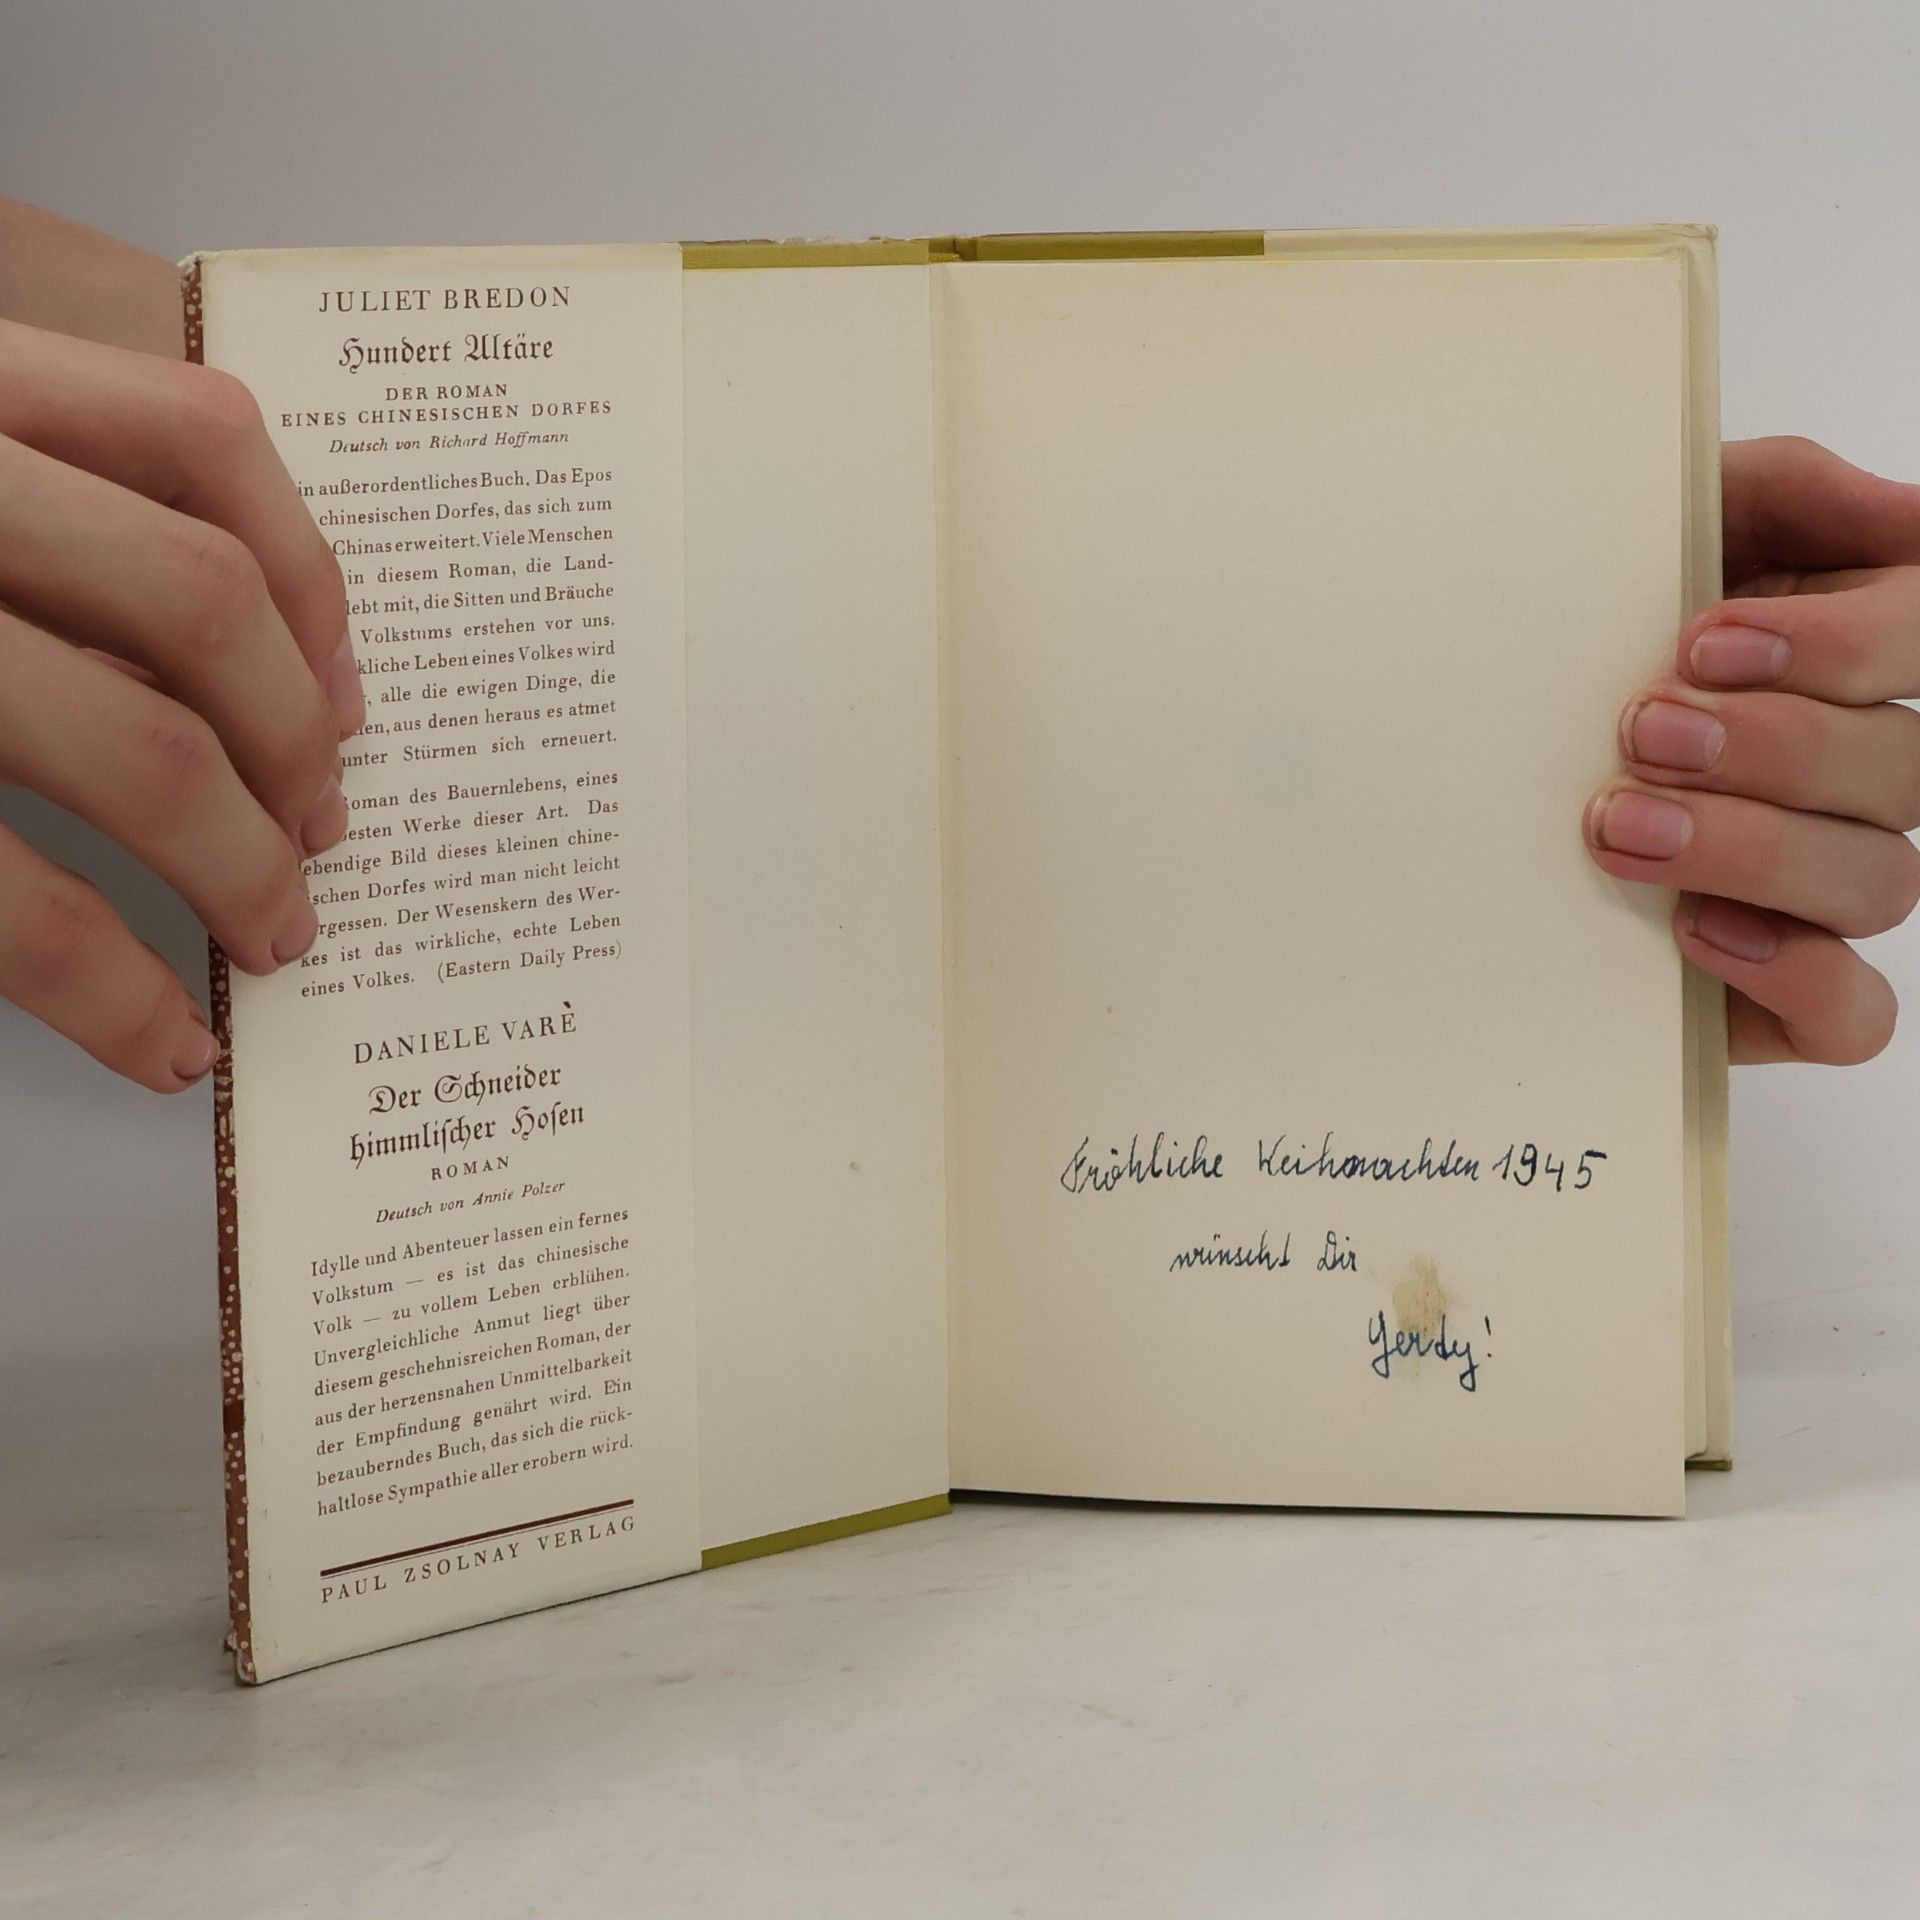 JULIET BREDON
Hundert Altäre
DER ROMAN
EINES CHINESISCHEN DORFES
Deutsch von Richard Hoffmann
in außerordentliches Buch. Das Epos
chinesischen Dorfes, das sich zum
Chinas erweitert. Viele Menschen
in diesem Roman, die Land-
lebt mit, die Sitten und Bräuche
Volkstums erstehen vor uns.
kliche Leben eines Volkes wird
alle die ewigen Dinge, die
en, aus denen heraus es atmet
unter Stürmen sich erneuert.
Roman des Bauernlebens, eines
besten Werke dieser Art. Das
ebendige Bild dieses kleinen chine-
ischen Dorfes wird man nicht leicht
rgessen. Der Wesenskern des Wer-
kes ist das wirkliche, echte Leben
eines Volkes. (Eastern Daily Press)
DANIELE VARÈ
Der Schneider
himmlischer Hosen
ROMAN
Deutsch von Annie Polzer
Idylle und Abenteuer lassen ein fernes
Volkstum — es ist das chinesische
Volk — zu vollem Leben erblühen.
Unvergleichliche Anmut liegt über
diesem geschehnisreichen Roman, der
aus der herzensnahen Unmittelbarkeit
der Empfindung genährt wird. Ein
bezauberndes Buch, das sich die rück-
haltlose Sympathie aller erobern wird.
PAUL ZSOLNAY VERLAG
Fröhliche Weihnachten 1945
wünscht Dir
Gerdy!